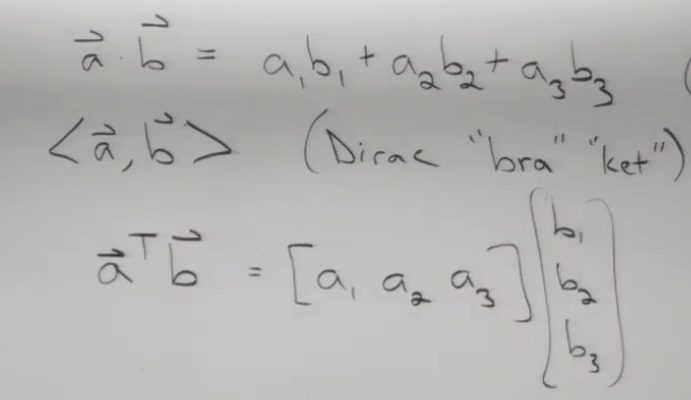 a⃗ · b⃗ = a₁b₁ + a₂b₂ + a₃b₃ (
<a⃗, b⃗> (Dirac "bra" "ket")
a⃗ᵀ b⃗ = [a₁ a₂ a₃] [b₁
b₂
b₃]